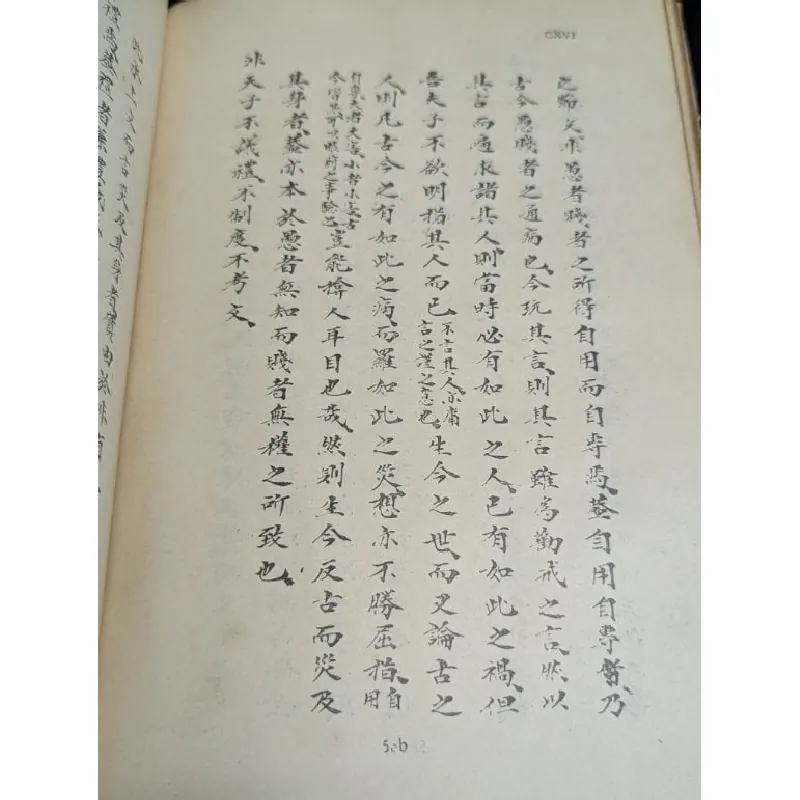 CXVI
之節文非愚者賤者之所得自用而自專焉蓋自用自專者乃
古今愚賤者之通病也今玩其言則其言雖為勸戒之言然以
其言而遍求諸其人則當時必有如此之人已有如此之禍但
吾夫子不欲明指其人而已不言其人亦庸言之謹之意也生今之世而又論古之
人則凡古今之有如此之病而罹如此之災想亦不勝屈指自用
自專大者大害小者小害古今皆然可以眼前之事驗之豈能掩人耳目也哉然則生今反古而災及
其身者蓋亦本於愚者無知而賤者無權之所致也
非天子不議禮不制度不考文
此承上文為古災及其身者實由
禮焉
50b